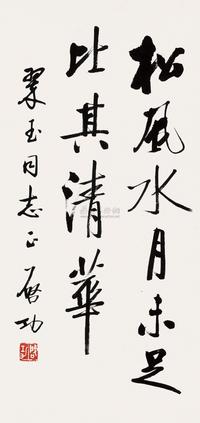 松风水月未足
比其清华
翠玉同志正 启功